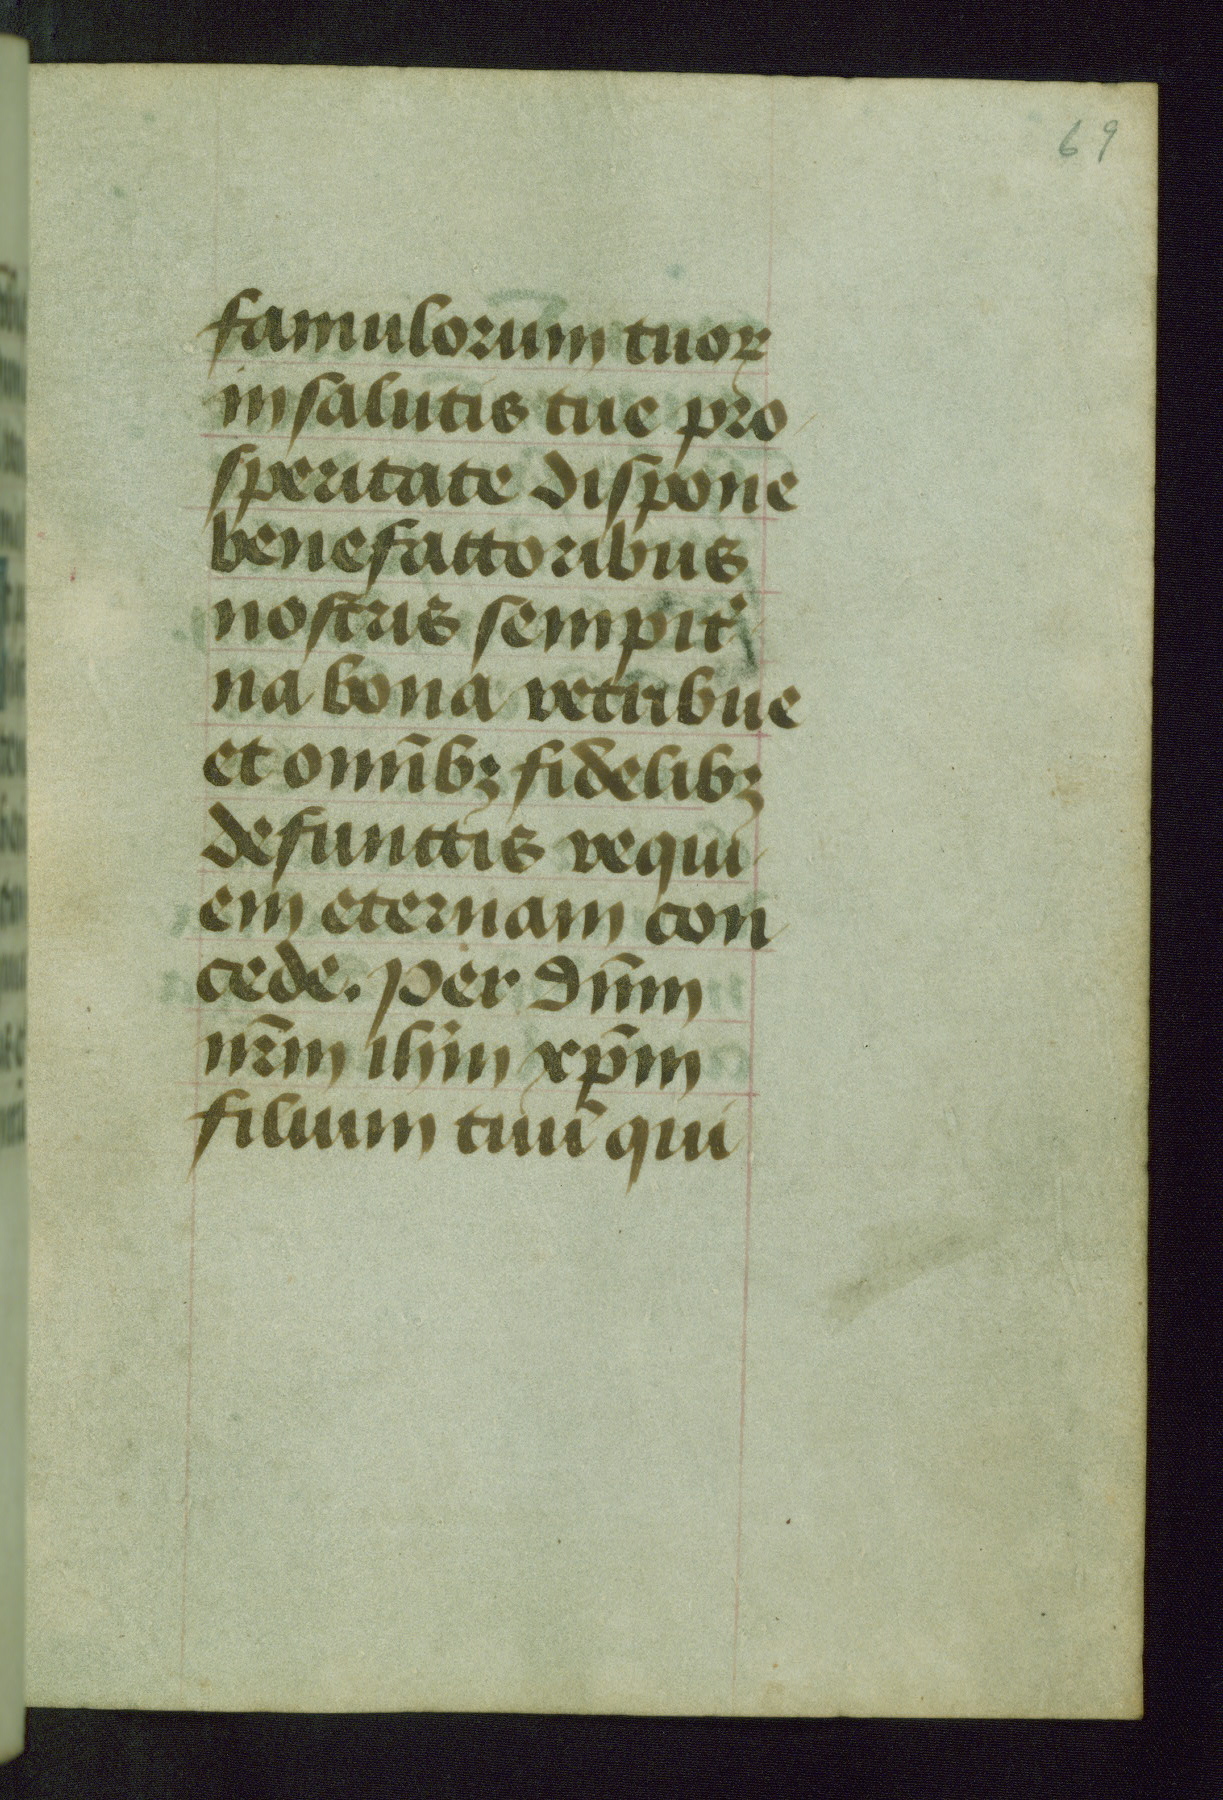 69
famulorum tuoꝝ
in salutis tue pro
speritate dispone
benefattoribus
nostris sempit᷑
na bona retribue
et omnībꝫ fidelibꝫ
defunctis requi
em eternam con
cede. Per dn̄m
nr̄m ihm̄ xp̄m
filium tuū qui